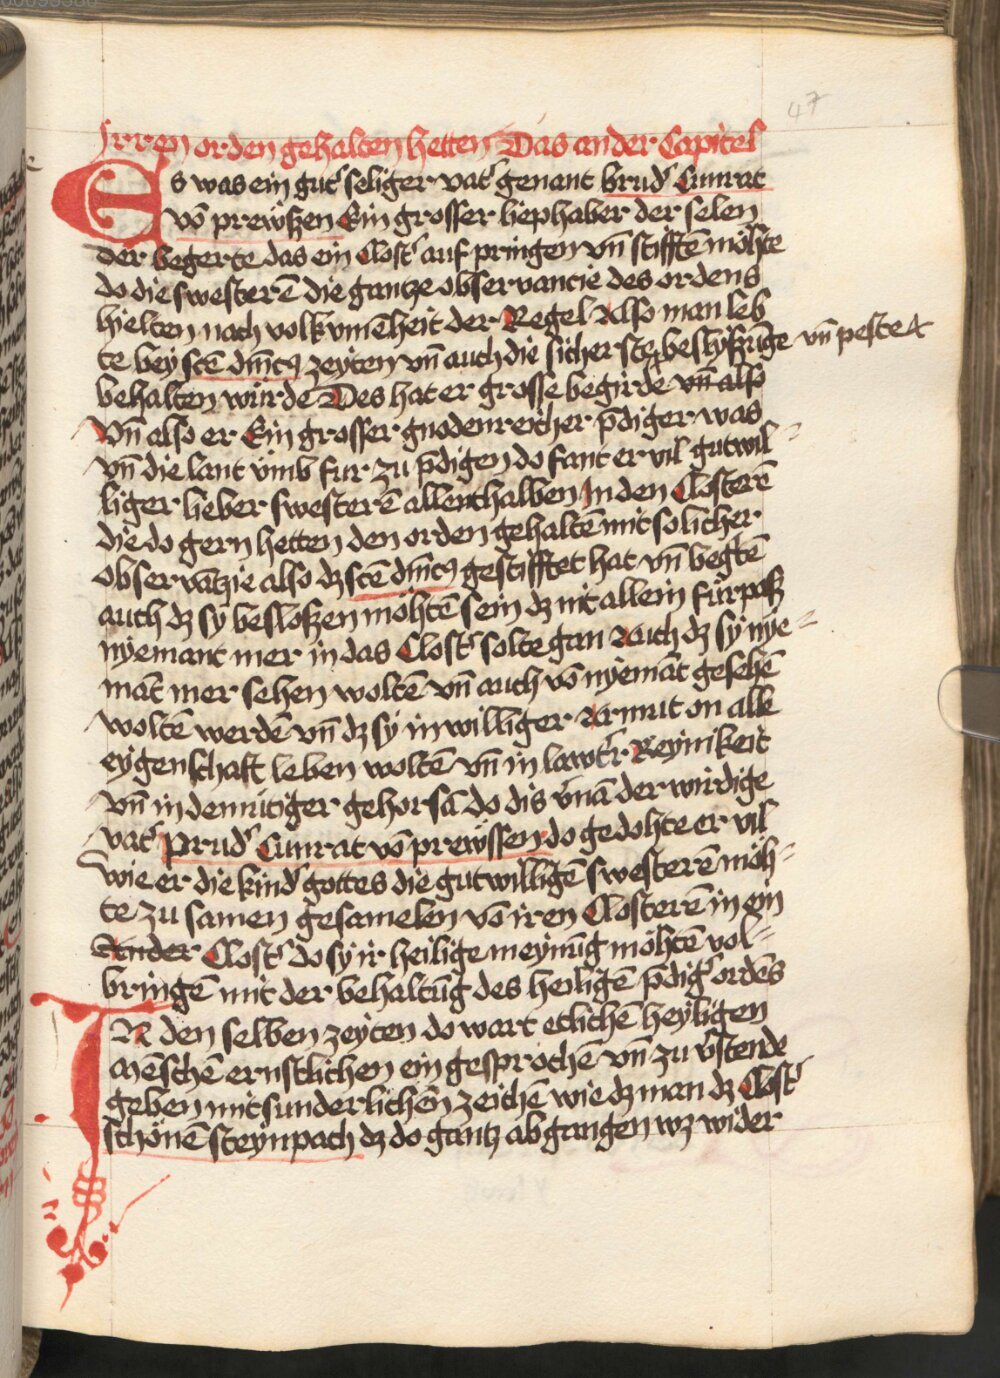 47
Irren orden gehalten hetten Das ander Capitel
Es was ein gut' seliger vat' genant brud' Cunrat
vō prewßen Ein grosser liephaber der selen
der begerte das ein Clost' auf pringen vn̄ stifftē möhte
do die swesterē die gantze observancie des ordens
hielten nach volkumēheit der Regel Also man leb
te bey sctē dmīcꝰ zeyten vn̄ auch die sicherste beslyßūge vn̄ peste
behalten würde Des hat er grosse begirde vn̄ also
vn̄ also er Ein grosser gnodenreicher p̄diger was
vn̄ die lant vmb fur zu p̄digen do fant er vil gutwil
liger lieber swesterē allenthalben In den Closterē
die do gern hetten den orden gehaltē mit solicher
observātzie also dz sctē dmīcꝰ gestifftet hat vn̄ begtē
auch dz sy besloßen möhtē sein dz nit allein fürpaß
nyemant mer in das Clost' solte gan Auch dz sy nye-
māt mer sehen woltē vn̄ auch vō nyemāt gesehē
woltē werdē vn̄ dz sy in williger Armut on alle
eygenschaft leben woltē vn̄ in lawt'r Reynikeit
vn̄ in demütiger gehorsā do dis v'nā der wirdige
vat' prud' Cunrat vō prewssen do gedohte er vil
wie er die kind' gottes die gutwilligē swesterē möh-
te zu samen gesamelen vō iren Closterē in ein
Ander Clost' do sy ir heilige meynūg möhtē vol-
bringē mit der behaltūg des heiligē p̄dig' ordēs
In den selben zeyten do wart etlichē heyligen
mēschē ernstlichen ein gesprochē vn̄ zu v'stende
geben mit sunderlichē zeichē wie dz man dz Clost'
schönē steynpach dz do gantz abgangen wz wider